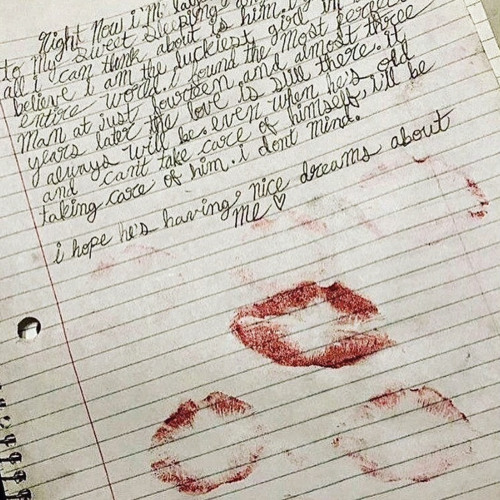 Right Now i'm
to my sweet sleeping
all i can think about is him. i
believe i am the luckiest girl in
entire world. i found the most perfect
Man at just fourteen and almost three
years later the love is still there. it
always will be. even when he's old
and can't take care of himself, i'll be
taking care of him. i dont mind.
i hope he's having nice dreams about
me ♡